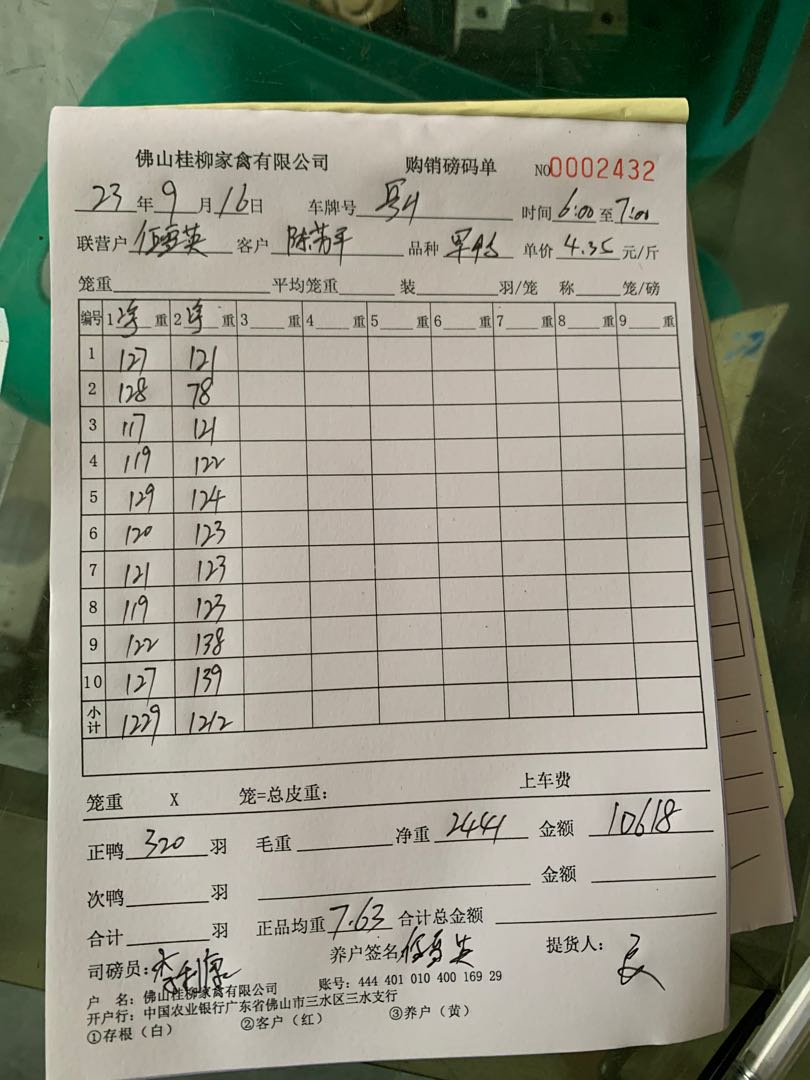 佛山桂柳家禽有限公司 购销磅码单 NO0002432
23年9月16日 车牌号 时间6:00至7:00
联营户伍雪英 客户陈芳平 品种 单价4.35元/斤
笼重 平均笼重 装 羽/笼 称 笼/磅
编号 1 重 2 重 3 重 4 重 5 重 6 重 7 重 8 重 9 重
1 127 121
2 128 78
3 117 121
4 119 122
5 129 124
6 120 123
7 121 123
8 119 123
9 122 138
10 127 139
小计 1229 1212
笼重 X 笼=总皮重: 上车费
正鸭320羽 毛重 净重2441 金额10618
次鸭 羽 金额
合计 羽 正品均重7.63 合计总金额
司磅员: 养户签名伍雪英 提货人:
户 名: 佛山桂柳家禽有限公司 账号: 444 401 010 400 169 29
开户行: 中国农业银行广东省佛山市三水区三水支行
①存根(白) ②客户(红) ③养户(黄)